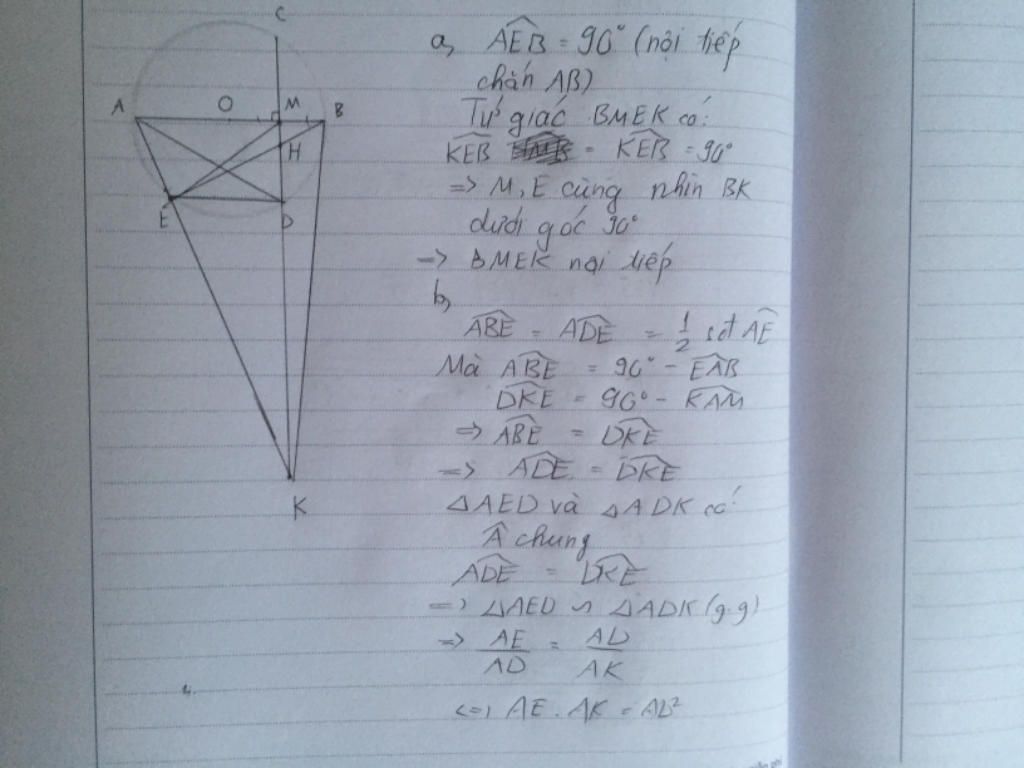 C
A
O
M
B
H
E
D
K
a, AEB̂ = 90° (nội tiếp
chắn AB)
Tứ giác BMEK có:
KEB̂ = KEB̂ = 90°
=> M, E cùng nhìn BK
dưới góc 90°
=> BMEK nội tiếp
b,
ABÊ = ADÊ = 1/2 sđ AÊ
Mà ABÊ = 90° - EAB̂
DKÊ = 90° - KAM̂
=> ABÊ = DKÊ
=> ADÊ = DKÊ
△AED và △ADK có
Â chung
ADÊ = DKÊ
=> △AED ∽ △ADK (g.g)
=> AE/AD = AD/AK
<=> AE . AK = AD²